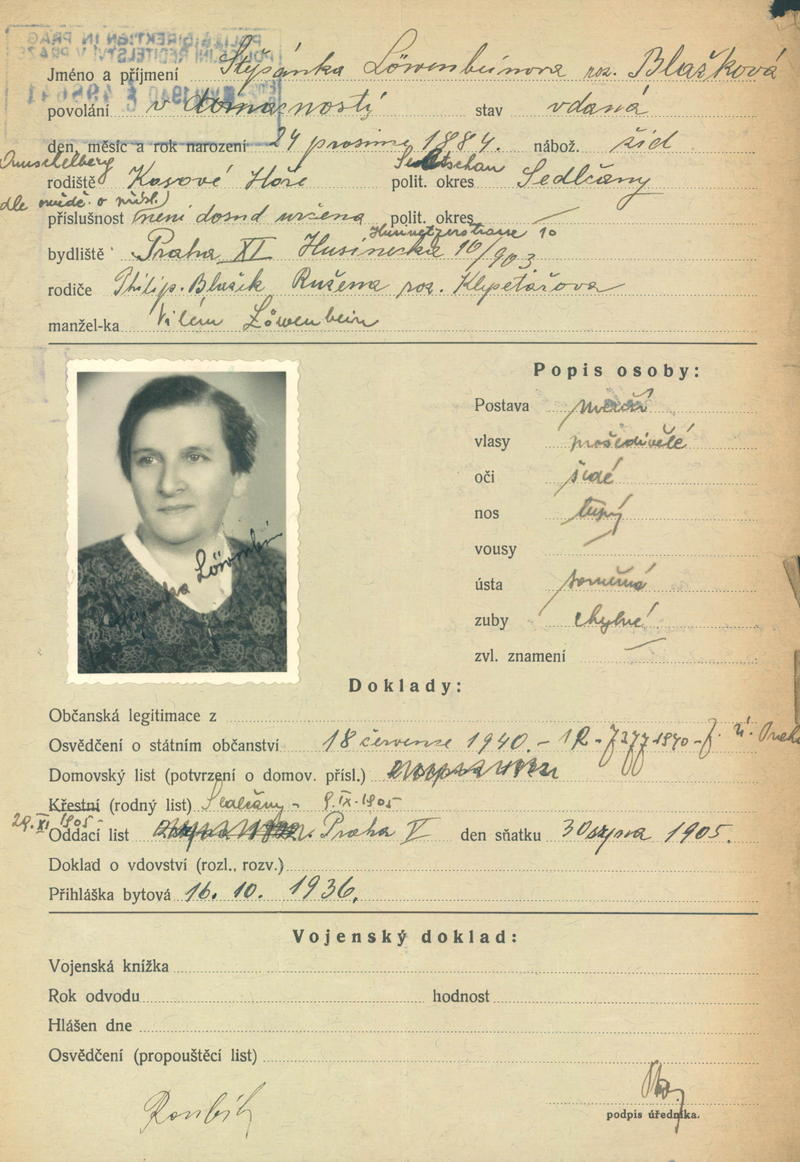 POLIZEIDIREKTION IN PRAG
POLICEJNÍ ŘEDITELSTVÍ V PRAZE
Jméno a příjmení Štěpánka Löwenbeinova roz. Blašková
povolání v domacnosti stav vdaná
den, měsíc a rok narození 24 prosince 1884. nábož. žid
Amschelberg Seltschan
rodiště Kosové Hoře polit. okres Sedlčany
dle
příslušnost není dosud určena polit. okres
10
bydliště Praha XI Husinecká 10/903
rodiče Philip. Blašik Ružena roz. Klepetářova
manžel-ka Vilém Löwenbein
Popis osoby:
Postava menší
vlasy prošedivělé
oči šedé
nos tupý
vousy
ústa souměrná
zuby chybné
zvl. znamení
Löwenbein
Doklady:
Občanská legitimace z
Osvědčení o státním občanství 18 července 1940.-
Domovský list (potvrzení o domov. přísl.)
Křestní (rodný list) Sedlčany - 9.IX.1905
29. XI 1905
Oddací list Praha V den sňatku 30 srpna 1905.
Doklad o vdovství (rozl., rozv.)
Přihláška bytová 16. 10. 1936.
Vojenský doklad:
Vojenská knížka
Rok odvodu hodnost
Hlášen dne
Osvědčení (propouštěcí list)
podpis úředníka.